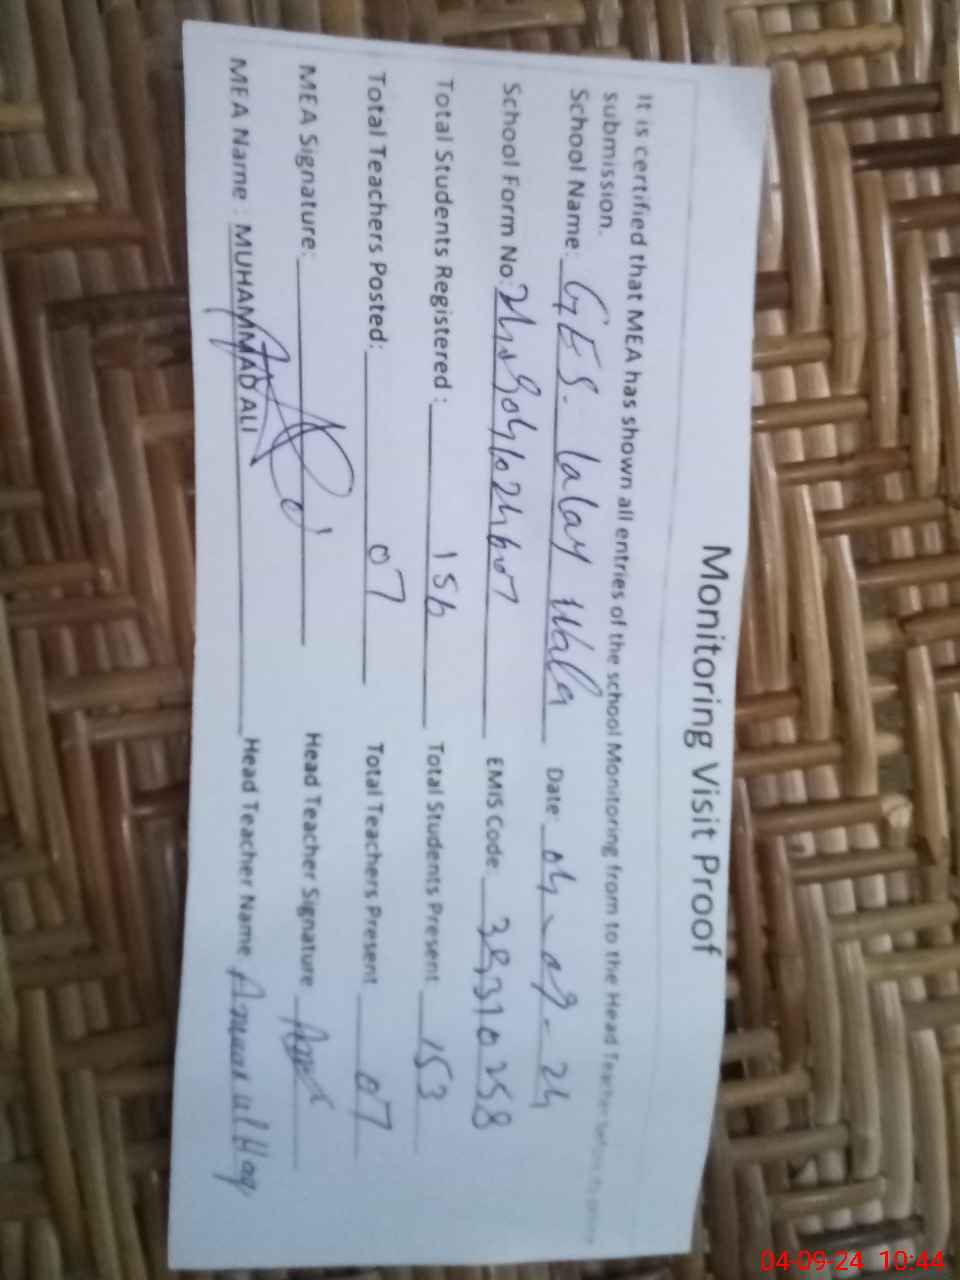 Monitoring Visit Proof
It is certified that MEA has shown all entries of the school Monitoring from to the Head Teacher before its
submission.
School Name: GES. lalay Wala Date: 04-09-24
School Form No: EMIS Code: 38310258
Total Students Registered : 156 Total Students Present 153
Total Teachers Posted: 07 Total Teachers Present 07
MEA Signature: Head Teacher Signature
MEA Name : MUHAMMAD ALI Head Teacher Name Anwar ul Haq
04-09-24 10:44